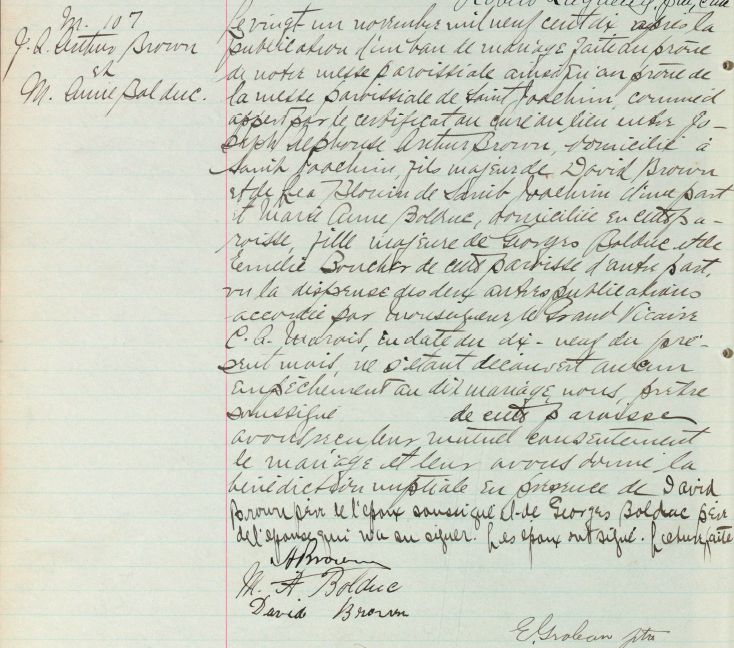 M. 107
J. A. Arthur Brown
et
M. Anne Bolduc.
Le vingt un novembre mil neuf cent dix après la
publication d'un ban de mariage faite au prône
de notre messe paroissiale ainsi qu'au prône de
la messe paroissiale de Saint Joachim, comme il
appert par le certificat du curé du lieu entre Jo-
seph Alphonse Arthur Brown, domicilié à
Saint Joachim, fils majeur de David Brown
et de Léa Blouin de Saint Joachim d'une part
et Marie Anne Bolduc, domiciliée en cette pa-
roisse, fille majeure de Georges Bolduc et de
Emélie Boucher de cette paroisse d'autre part,
vu la dispense des deux autres publications
accordée par monseigneur le Grand Vicaire
C. A. Marois, en date du dix-neuf du pré-
sent mois, ne s'étant découvert aucun
empêchement au dit mariage, nous, prêtre
soussigné de cette paroisse
avons reçu leur mutuel consentement
le mariage et leur avons donné la
bénédiction nuptiale en présence de David
Brown père de l'époux soussigné et de Georges Bolduc père
de l'épouse qui n'a su signer. Les époux ont signé. Lecture faite
A Brown
M. A. Bolduc
David Brown
ptre